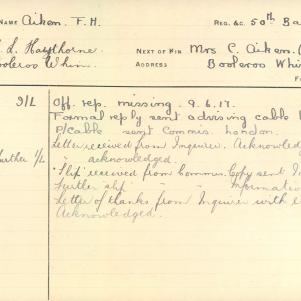 NAME Aiken. F. H. REG. &C. 50th Ba
L. Haythorne NEXT OF KIN Mrs C. Aiken.
Booleroo Whim ADDRESS Booleroo Whi
9/L Off. rep. missing. 9.6.17.
Formal reply sent advising cable
P/Cable sent Commis. London.
Letter received from Inquirer. Acknowled
further 1/L " acknowledged.
Slip received from Commis. Copy sent I
Further slip " " " Informatio
Letter of thanks from Inquirer with
Acknowledged.